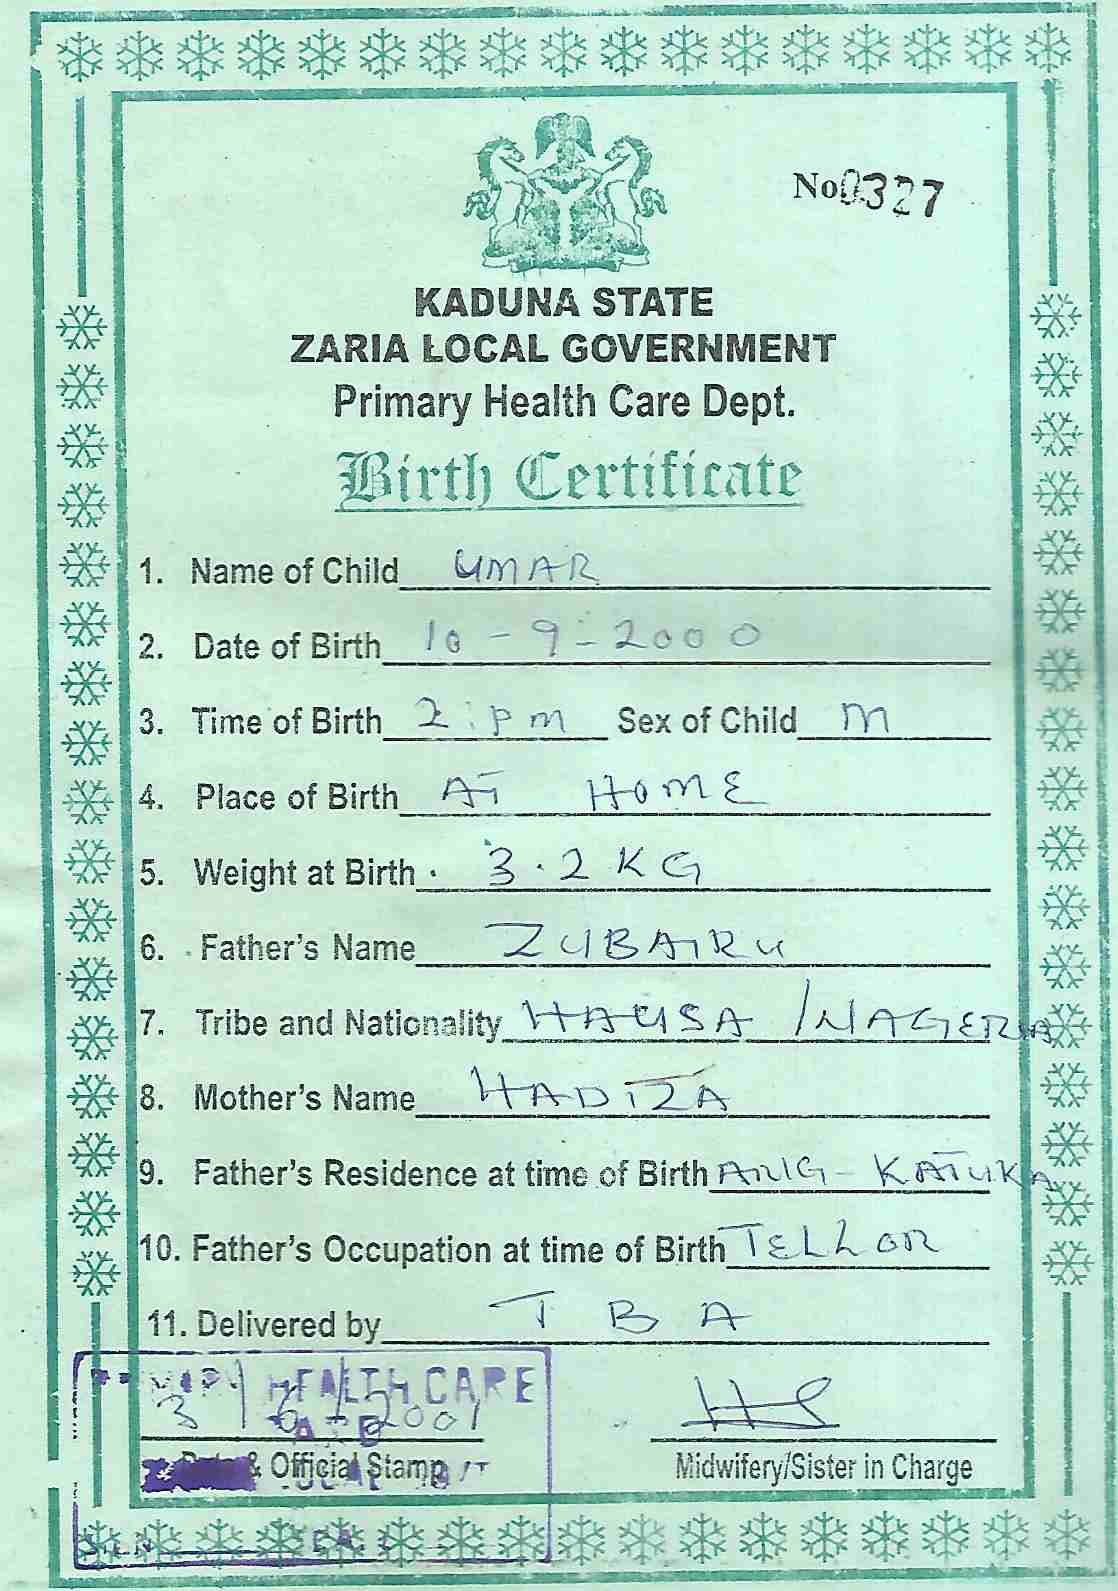 No 0327
KADUNA STATE
ZARIA LOCAL GOVERNMENT
Primary Health Care Dept.
Birth Certificate
1. Name of Child UMAR
2. Date of Birth 10 - 9 - 2000
3. Time of Birth 2:pm Sex of Child M
4. Place of Birth AT HOME
5. Weight at Birth 3.2 KG
6. Father's Name ZUBAIRU
7. Tribe and Nationality HAUSA / NAGERIA
8. Mother's Name HADIZA
9. Father's Residence at time of Birth ANG-KATUKA
10. Father's Occupation at time of Birth TELLOR
11. Delivered by T B A
HEALTH CARE
3 / 6 / 2001
Date & Official Stamp
Midwifery/Sister in Charge